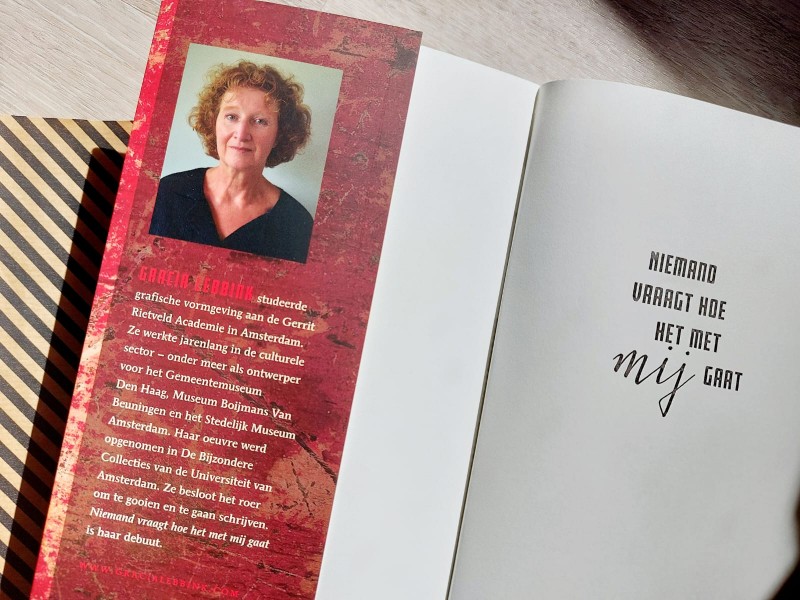 GRACIA LEBBINK studeerde
grafische vormgeving aan de Gerrit
Rietveld Academie in Amsterdam.
Ze werkte jarenlang in de culturele
sector – onder meer als ontwerper
voor het Gemeentemuseum
Den Haag, Museum Boijmans Van
Beuningen en het Stedelijk Museum
Amsterdam. Haar oeuvre werd
opgenomen in De Bijzondere
Collecties van de Universiteit van
Amsterdam. Ze besloot het roer
om te gooien en te gaan schrijven.
Niemand vraagt hoe het met mij gaat
is haar debuut.
WWW.GRACIALEBBINK.COM
NIEMAND
VRAAGT HOE
HET MET
mij GAAT